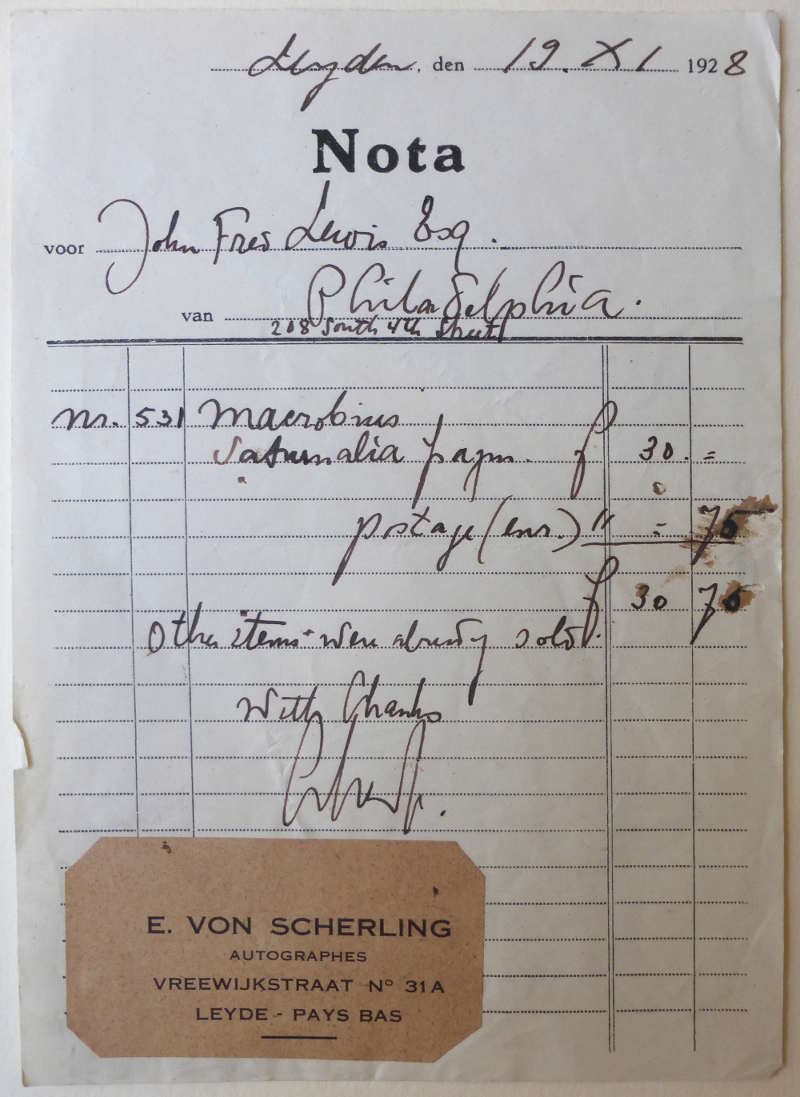 Leyden, den 19. XI 1928
Nota
voor John Fred Lewis Esq.
van Philadelphia.
208 South 4th Street
nr. 531 Macrobius
Saturnalia fragm. f 30. =
postage (enr.) " = 75
f 30 75
Other items were already sold.
With thanks
E. VON SCHERLING
AUTOGRAPHES
VREEWIJKSTRAAT No 31A
LEYDE - PAYS BAS